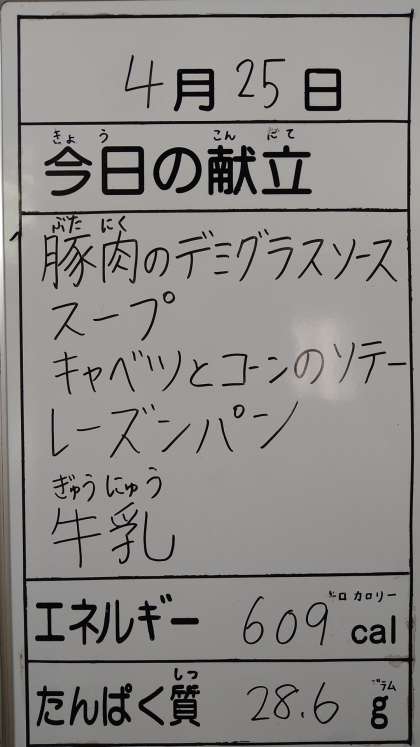 4月25日
きょう こんだて
今日の献立
ぶた にく
豚肉のデミグラスソース
スープ
キャベツとコーンのソテー
レーズンパン
ぎゅうにゅう
牛乳
キロカロリー
エネルギー 609 cal
しつ グラム
たんぱく質 28.6 g